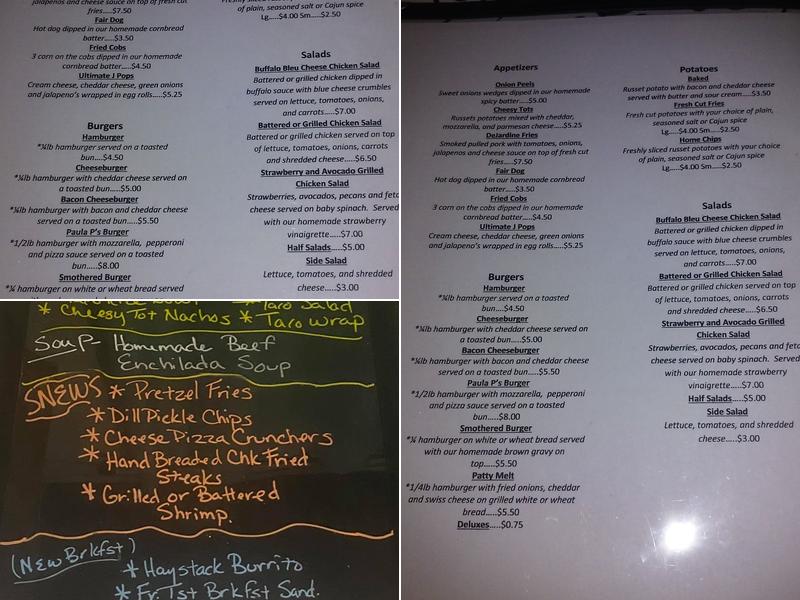 jalapenos and cheese sauce on top of fresh cut
fries.....$7.50
Fair Dog
Hot dog dipped in our homemade cornbread
batter.....$3.50
Fried Cobs
3 corn on the cobs dipped in our homemade
cornbread batter.....$4.50
Ultimate J Pops
Cream cheese, cheddar cheese, green onions
and jalapeno's wrapped in egg rolls.....$5.25
Burgers
Hamburger
*¼lb hamburger served on a toasted
bun.....$4.50
Cheeseburger
*¼lb hamburger with cheddar cheese served on
a toasted bun.....$5.00
Bacon Cheeseburger
*¼lb hamburger with bacon and cheddar cheese
served on a toasted bun.....$5.50
Paula P's Burger
*1/2lb hamburger with mozzarella, pepperoni
and pizza sauce served on a toasted
bun.....$8.00
Smothered Burger
*¼ hamburger on white or wheat bread served
of plain, seasoned salt or Cajun spice
Lg.....$4.00 Sm.....$2.50
Salads
Buffalo Bleu Cheese Chicken Salad
Battered or grilled chicken dipped in
buffalo sauce with blue cheese crumbles
served on lettuce, tomatoes, onions,
and carrots.....$7.00
Battered or Grilled Chicken Salad
Battered or grilled chicken served on top
of lettuce, tomatoes, onions, carrots
and shredded cheese.....$6.50
Strawberry and Avocado Grilled
Chicken Salad
Strawberries, avocados, pecans and feta
cheese served on baby spinach. Served
with our homemade strawberry
vinaigrette.....$7.00
Half Salads.....$5.00
Side Salad
Lettuce, tomatoes, and shredded
cheese.....$3.00
* Taco Salad
* Cheesy Tot Nachos * Taco Wrap
Soup- Homemade Beef
Enchilada Soup
SNEWS * Pretzel Fries
* Dill Pickle Chips
* Cheese Pizza Crunchers
* Hand Breaded Chk Fried
Steaks
* Grilled or Battered
Shrimp.
(New Brkfst)
* Haystack Burrito
* Fr. Tst Brkfst Sand.
Appetizers
Onion Peels
Sweet onions wedges dipped in our homemade
spicy batter.....$5.00
Cheesy Tots
Russets potatoes mixed with cheddar,
mozzarella, and parmesan cheese.....$5.25
DeJardine Fries
Smoked pulled pork with tomatoes, onions,
jalapenos and cheese sauce on top of fresh cut
fries.....$7.50
Fair Dog
Hot dog dipped in our homemade cornbread
batter.....$3.50
Fried Cobs
3 corn on the cobs dipped in our homemade
cornbread batter.....$4.50
Ultimate J Pops
Cream cheese, cheddar cheese, green onions
and jalapeno's wrapped in egg rolls.....$5.25
Burgers
Hamburger
*¼lb hamburger served on a toasted
bun.....$4.50
Cheeseburger
*¼lb hamburger with cheddar cheese served on
a toasted bun.....$5.00
Bacon Cheeseburger
*¼lb hamburger with bacon and cheddar cheese
served on a toasted bun.....$5.50
Paula P's Burger
*1/2lb hamburger with mozzarella, pepperoni
and pizza sauce served on a toasted
bun.....$8.00
Smothered Burger
*¼ hamburger on white or wheat bread served
with our homemade brown gravy on
top.....$5.50
Patty Melt
*1/4lb hamburger with fried onions, cheddar
and swiss cheese on grilled white or wheat
bread.....$5.50
Deluxes.....$0.75
Potatoes
Baked
Russet potato with bacon and cheddar cheese
served with butter and sour cream.....$3.50
Fresh Cut Fries
Fresh cut potatoes with your choice of plain,
seasoned salt or Cajun spice
Lg.....$4.00 Sm.....$2.50
Home Chips
Freshly sliced russet potatoes with your choice
of plain, seasoned salt or Cajun spice
Lg.....$4.00 Sm.....$2.50
Salads
Buffalo Bleu Cheese Chicken Salad
Battered or grilled chicken dipped in
buffalo sauce with blue cheese crumbles
served on lettuce, tomatoes, onions,
and carrots.....$7.00
Battered or Grilled Chicken Salad
Battered or grilled chicken served on top
of lettuce, tomatoes, onions, carrots
and shredded cheese.....$6.50
Strawberry and Avocado Grilled
Chicken Salad
Strawberries, avocados, pecans and feta
cheese served on baby spinach. Served
with our homemade strawberry
vinaigrette.....$7.00
Half Salads.....$5.00
Side Salad
Lettuce, tomatoes, and shredded
cheese.....$3.00